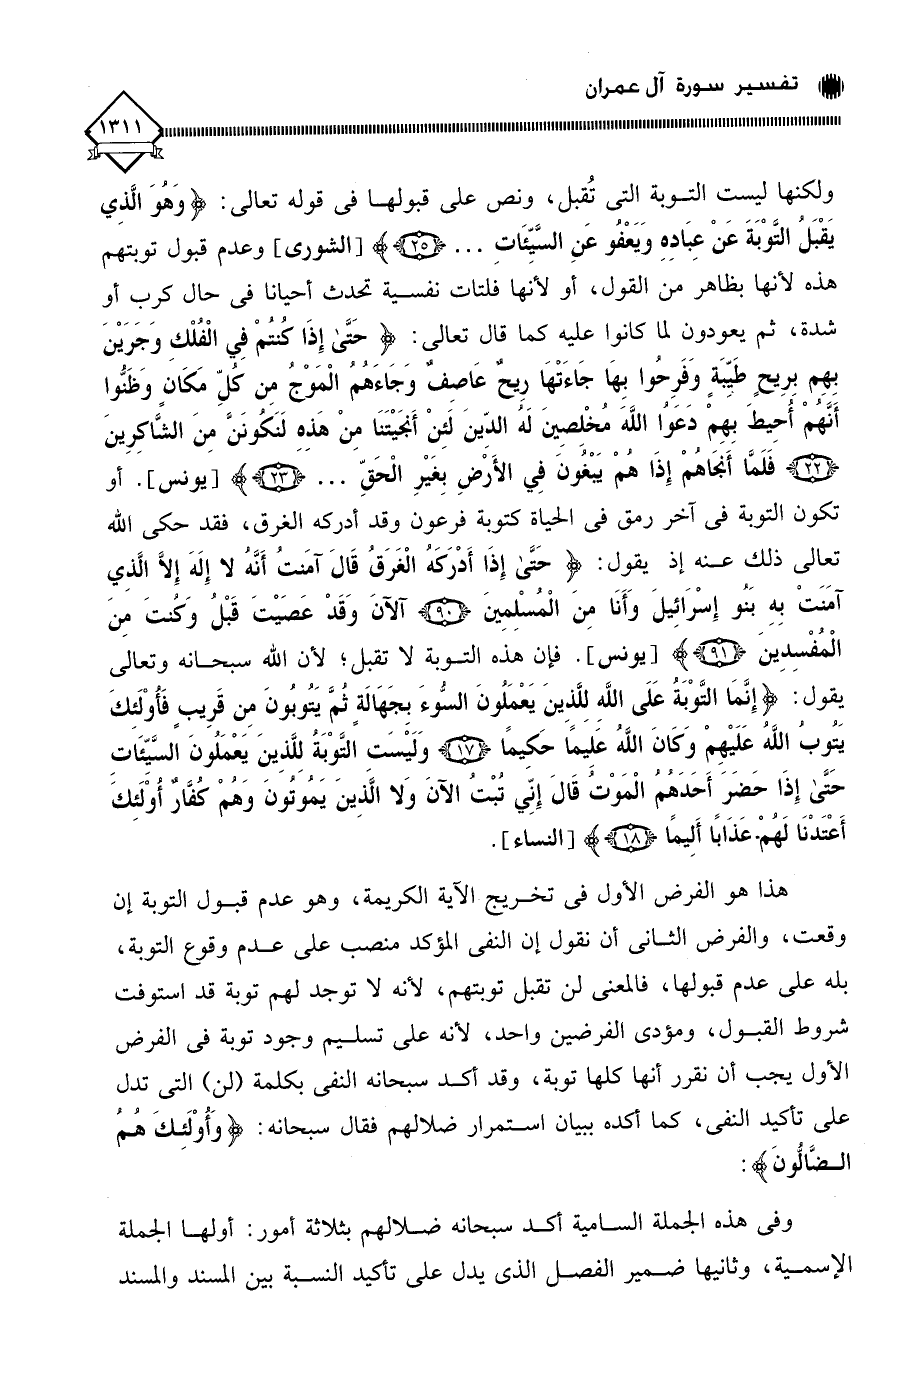 تفسير سورة آل عمران
١٣١١
ولكنها ليست التوبة التى تُقبل، ونص على قبولها فى قوله تعالى: ﴿ وَهُوَ الَّذِي
يَقْبَلُ التَّوْبَةَ عَنْ عِبَادِهِ وَيَعْفُو عَنِ السَّيِّئَاتِ ... ﴿٢٥﴾ ﴾ [الشورى] وعدم قبول توبتهم
هذه لأنها بظاهر من القول، أو لأنها فلتات نفسية تحدث أحيانا فى حال كرب أو
شدة، ثم يعودون لما كانوا عليه كما قال تعالى: ﴿ حَتَّىٰ إِذَا كُنتُمْ فِي الْفُلْكِ وَجَرَيْنَ
بِهِم بِرِيحٍ طَيِّبَةٍ وَفَرِحُوا بِهَا جَاءَتْهَا رِيحٌ عَاصِفٌ وَجَاءَهُمُ الْمَوْجُ مِن كُلِّ مَكَانٍ وَظَنُّوا
أَنَّهُمْ أُحِيطَ بِهِمْ دَعَوُا اللَّهَ مُخْلِصِينَ لَهُ الدِّينَ لَئِنْ أَنجَيْتَنَا مِنْ هَذِهِ لَنَكُونَنَّ مِنَ الشَّاكِرِينَ
﴿٢٢﴾ فَلَمَّا أَنجَاهُمْ إِذَا هُمْ يَبْغُونَ فِي الأَرْضِ بِغَيْرِ الْحَقِّ ... ﴿٢٣﴾ ﴾ [يونس]. أو
تكون التوبة فى آخر رمق فى الحياة كتوبة فرعون وقد أدركه الغرق، فقد حكى الله
تعالى ذلك عنه إذ يقول: ﴿ حَتَّىٰ إِذَا أَدْرَكَهُ الْغَرَقُ قَالَ آمَنتُ أَنَّهُ لا إِلَهَ إِلاَّ الَّذِي
آمَنَتْ بِهِ بَنُو إِسْرَائِيلَ وَأَنَا مِنَ الْمُسْلِمِينَ ﴿٩٠﴾ آلآنَ وَقَدْ عَصَيْتَ قَبْلُ وَكُنتَ مِنَ
الْمُفْسِدِينَ ﴿٩١﴾ ﴾ [يونس]. فإن هذه التوبة لا تقبل؛ لأن الله سبحانه وتعالى
يقول: ﴿ إِنَّمَا التَّوْبَةُ عَلَى اللَّهِ لِلَّذِينَ يَعْمَلُونَ السُّوءَ بِجَهَالَةٍ ثُمَّ يَتُوبُونَ مِن قَرِيبٍ فَأُوْلَئِكَ
يَتُوبُ اللَّهُ عَلَيْهِمْ وَكَانَ اللَّهُ عَلِيمًا حَكِيمًا ﴿١٧﴾ وَلَيْسَتِ التَّوْبَةُ لِلَّذِينَ يَعْمَلُونَ السَّيِّئَاتِ
حَتَّىٰ إِذَا حَضَرَ أَحَدَهُمُ الْمَوْتُ قَالَ إِنِّي تُبْتُ الآنَ وَلا الَّذِينَ يَمُوتُونَ وَهُمْ كُفَّارٌ أُوْلَئِكَ
أَعْتَدْنَا لَهُمْ عَذَابًا أَلِيمًا ﴿١٨﴾ ﴾ [النساء].
هذا هو الفرض الأول فى تخريج الآية الكريمة، وهو عدم قبول التوبة إن
وقعت، والفرض الثانى أن نقول إن النفى المؤكد منصب على عدم وقوع التوبة،
بله على عدم قبولها، فالمعنى لن تقبل توبتهم، لأنه لا توجد لهم توبة قد استوفت
شروط القبول، ومؤدى الفرضين واحد، لأنه على تسليم وجود توبة فى الفرض
الأول يجب أن نقرر أنها كلها توبة، وقد أكد سبحانه النفى بكلمة (لن) التى تدل
على تأكيد النفى، كما أكده ببيان استمرار ضلالهم فقال سبحانه: ﴿ وَأُوْلَئِكَ هُمُ
الضَّالُّونَ ﴾:
وفى هذه الجملة السامية أكد سبحانه ضلالهم بثلاثة أمور: أولها الجملة
الإسمية، وثانيها ضمير الفصل الذى يدل على تأكيد النسبة بين المسند والمسند